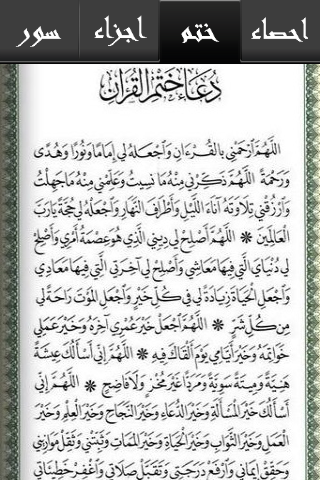 احصاء ختم اجزاء سور
دُعَاءُ خَتْمِ القُرْآنِ
اللَّهُمَّ ٱرْحَمْنِي بالقُرْءَانِ وَٱجْعَلهُ لي إِمَامًا وَنُورًا وَهُدًى
وَرَحْمَةً اللَّهُمَّ ذَكِّرْنِي مِنْهُ مَا نَسِيتُ وَعَلِّمْنِي مِنْهُ مَا جَهِلْتُ
وَٱرْزُقْنِي تِلاَوَتَهُ آنَاءَ اللَّيْلِ وَأَطْرَافَ النَّهَارِ وَٱجْعَلْهُ لِي حُجَّةً يَارَبَّ
العَالَمِينَ ❋ اللَّهُمَّ أَصْلِحْ لِي دِينِي الَّذِي هُوَ عِصْمَةُ أَمْرِي وَأَصْلِحْ
لِي دُنْيَايَ الَّتِي فِيهَا مَعَاشِي وَأَصْلِحْ لِي آخِرَتِي الَّتِي فِيهَا مَعَادِي
وَٱجْعَلِ الْحَيَاةَ زِيَادَةً لِي فِي كُلِّ خَيْرٍ وَٱجْعَلِ المَوْتَ رَاحَةً لِي
مِن كُلِّ شَرٍّ ❋ اللَّهُمَّ ٱجْعَلْ خَيْرَ عُمْرِي آخِرَهُ وَخَيْرَ عَمَلِي
خَوَاتِمَهُ وَخَيْرَ أَيَّامِي يَوْمَ أَلْقَاكَ فِيهِ ❋ اللَّهُمَّ إِنِّي أَسْأَلُكَ عِيشَةً
هَنِيَّةً وَمِيتَةً سَوِيَّةً وَمَرَدًّا غَيْرَ مُخْزٍ وَلَا فَاضِحٍ ❋ اللَّهُمَّ إِنِّي
أَسْأَلُكَ خَيْرَ المَسْأَلَةِ وَخَيْرَ الدُّعَاءِ وَخَيْرَ النَّجَاحِ وَخَيْرَ العِلْمِ وَخَيْرَ
العَمَلِ وَخَيْرَ الثَّوَابِ وَخَيْرَ الحَيَاةِ وَخَيْرَ المَمَاتِ وَثَبِّتْنِي وَثَقِّلْ مَوَازِينِي
وَحَقِّقْ إِيمَانِي وَٱرْفَعْ دَرَجَتِي وَتَقَبَّلْ صَلَاتِي وَٱغْفِرْ خَطِيئَاتِي